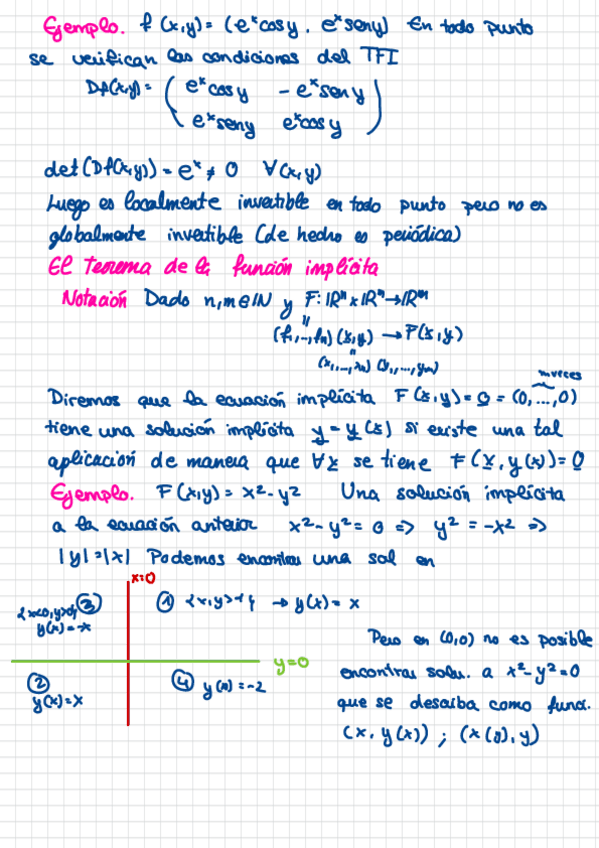 Ejemplo. f(x,y) = (eˣcosy, eˣseny) En todo punto
se verifican las condiciones del TFI
Df(x,y) = ( eˣcosy  -eˣseny
eˣseny  eˣcosy )
det(Df(x,y)) = eˣ ≠ 0 ∀(x,y)
Luego es localmente invertible en todo punto pero no es
globalmente invertible (de hecho es periódica)
El teorema de la función implícita
Notación Dado n,m∈ℕ y F: ℝⁿ x ℝᵐ → ℝᵐ
(f₁,...,fₙ) (x,y) → F(x,y)
(x₁,...,xₙ) (y₁,...,yₘ)
m veces
Diremos que la ecuación implícita F(x,y) = 0 = (0,...,0)
tiene una solución implícita y = y(x) si existe una tal
aplicación de manera que ∀x se tiene F(x, y(x)) = 0
Ejemplo. F(x,y) = x² - y² Una solución implícita
a la ecuación anterior x² - y² = 0 => y² = -x² =>
|y| = |x| Podemos encontrar una sol en
x=0
③ y(x) = -x
① → y(x) = x
y=0
② y(x) = x
④ y(x) = -2
Pero en (0,0) no es posible
encontrar solu. a x² - y² = 0
que se describa como func.
(x, y(x)) ; (x(y), y)